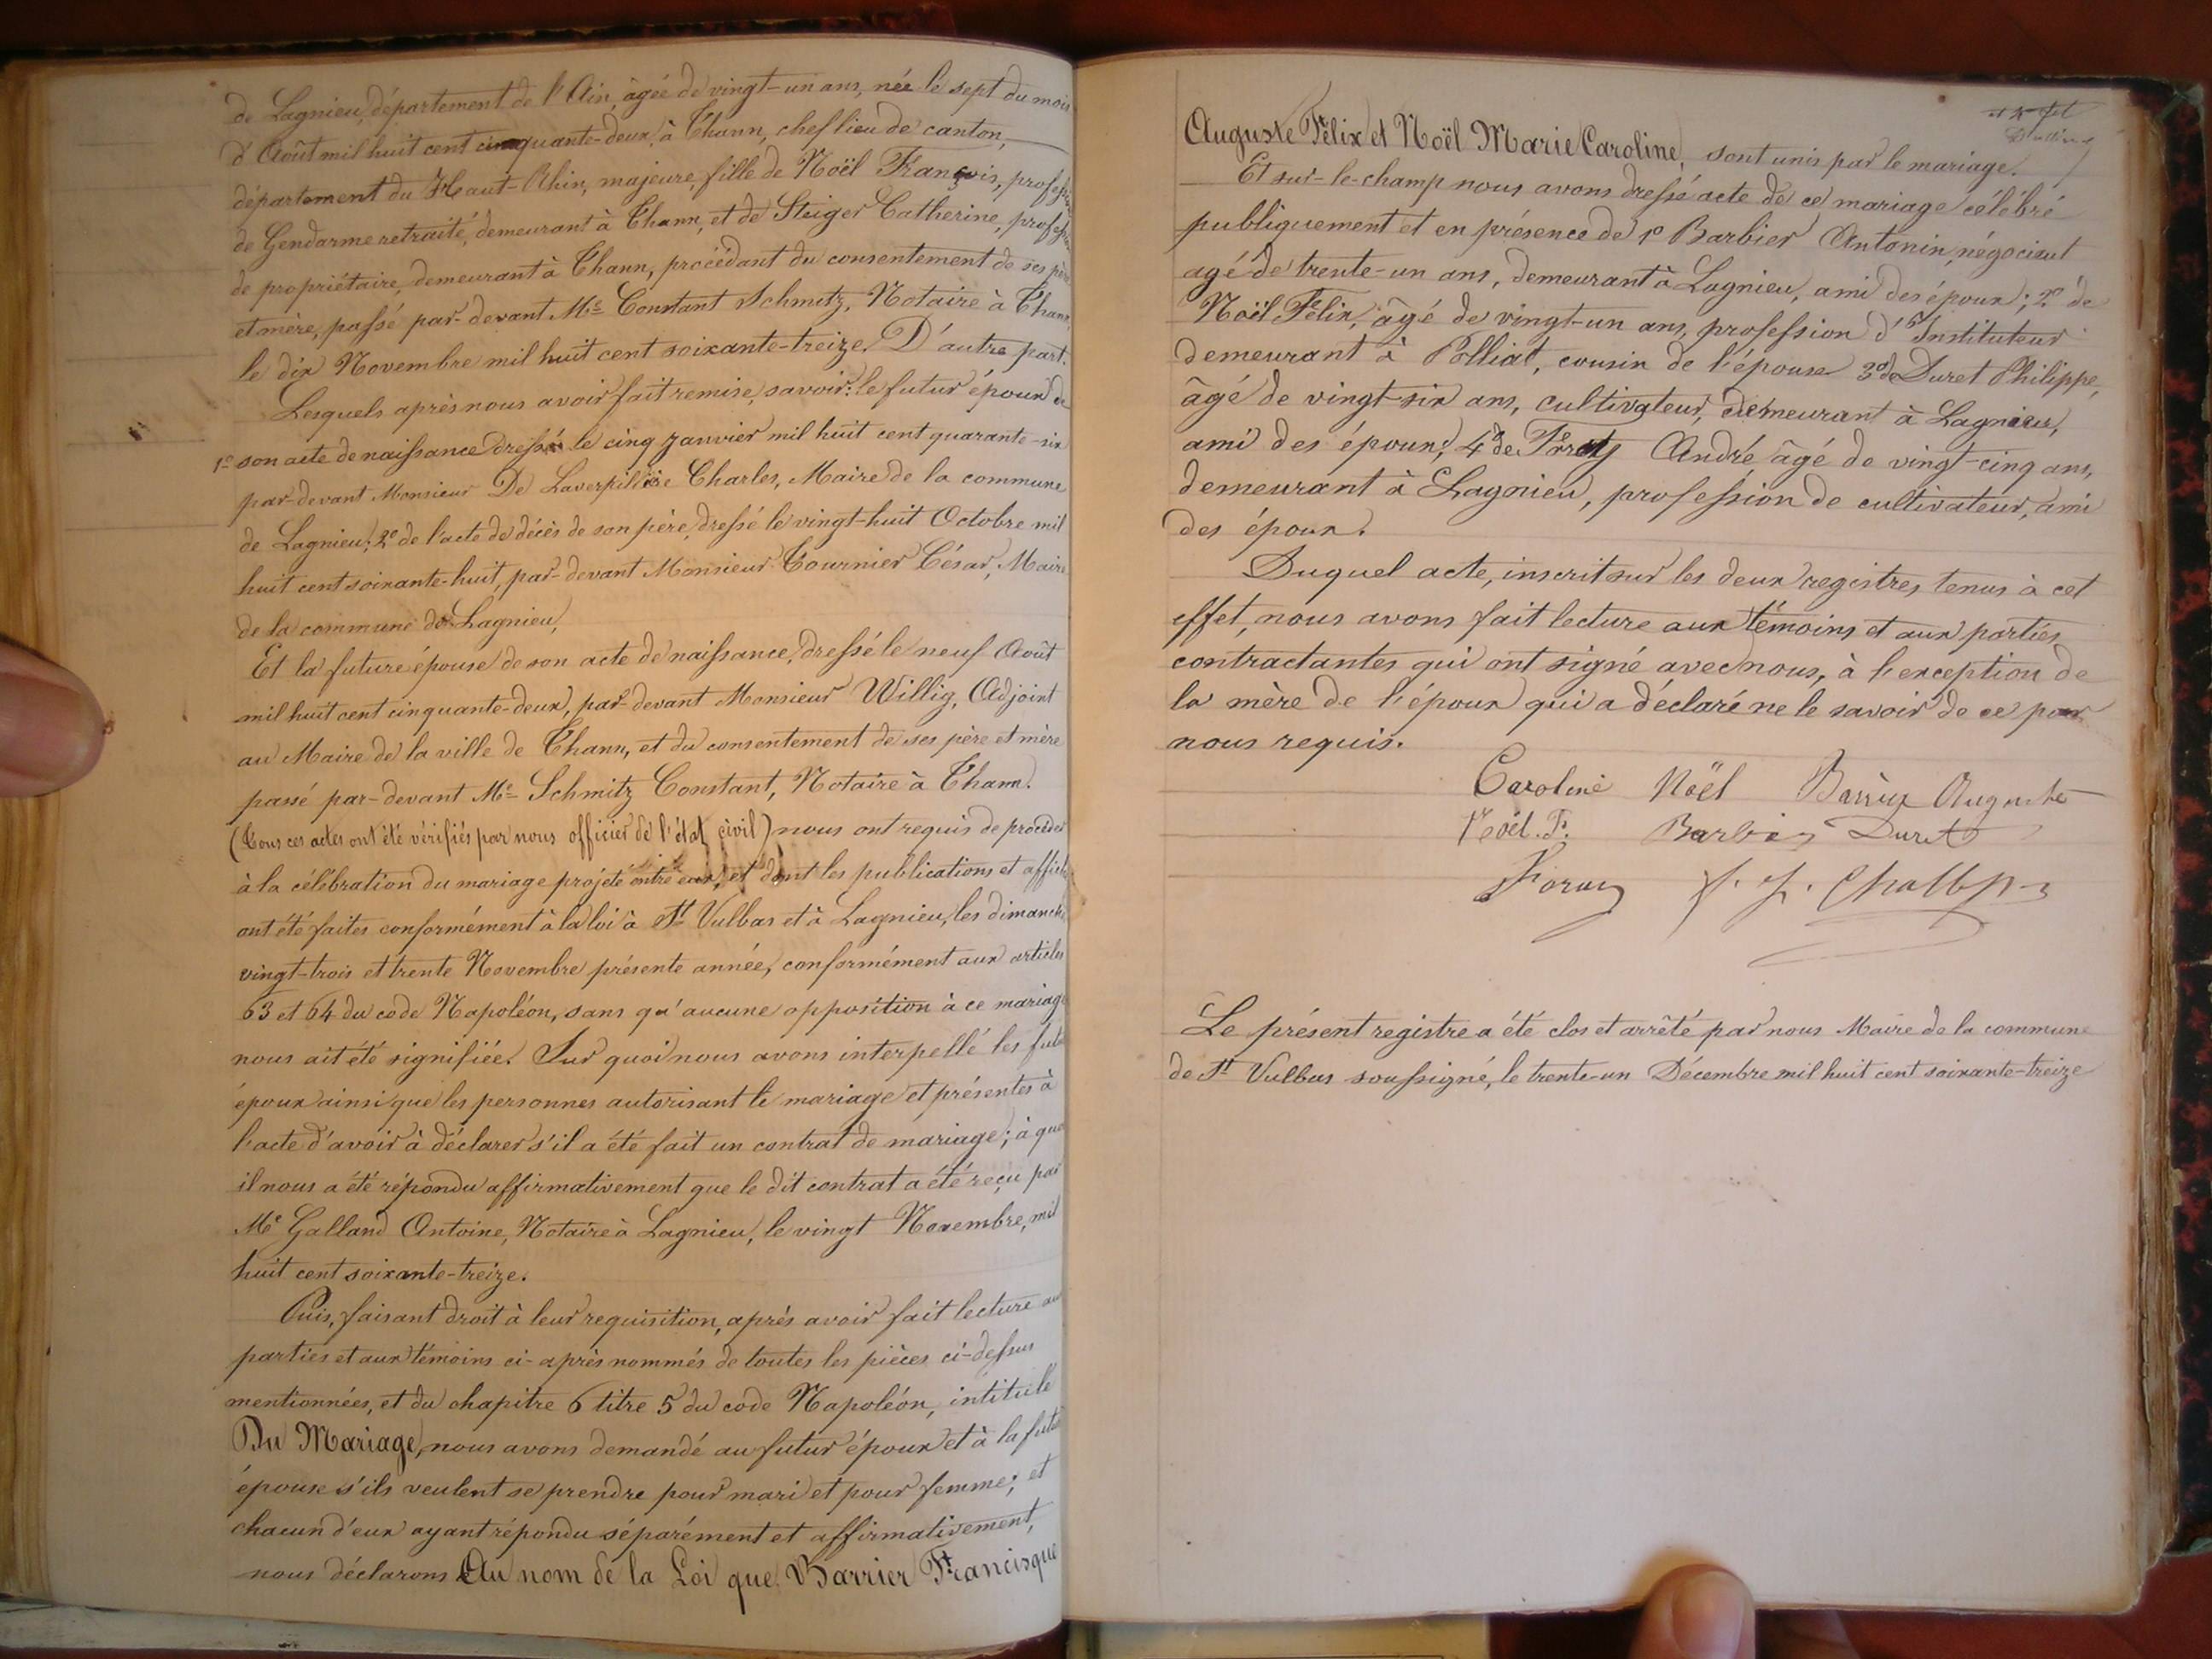 de Lagnieu, département de l'Ain, âgée de vingt-un ans, née le sept du mois
d'Août mil huit cent cinquante-deux, à Thann, chef lieu de canton,
département du Haut-Rhin, majeure, fille de Noël François, profession
de Gendarme retraité, demeurant à Thann, et de Steiger Catherine, profession
de propriétaire, demeurant à Thann, procédant du consentement de ses père
et mère, passé par-devant Me Constant Schmitz, Notaire à Thann,
le dix Novembre mil huit cent soixante-treize. D'autre part.
Lesquels après nous avoir fait remise, savoir: le futur époux de
1º son acte de naissance dressé le cinq Janvier mil huit cent quarante-six
par-devant Monsieur De Laverpillière Charles, Maire de la commune
de Lagnieu; 2º de l'acte de décès de son père, dressé le vingt-huit Octobre mil
huit cent soixante-huit, par-devant Monsieur Tournier César, Maire
de la commune de Lagnieu,
Et la future épouse de son acte de naissance, dressé le neuf Août
mil huit cent cinquante-deux, par-devant Monsieur Willig, Adjoint
au Maire de la ville de Thann, et du consentement de ses père et mère
passé par-devant Me Schmitz Constant, Notaire à Thann.
(Tous ces actes ont été vérifiés par nous officier de l'état civil) nous ont requis de procéder
à la célébration du mariage projeté entre eux, et dont les publications et affiches
ont été faites conformément à la loi à St Vulbas et à Lagnieu, les dimanches
vingt-trois et trente Novembre présente année, conformément aux articles
63 et 64 du code Napoléon, sans qu'aucune opposition à ce mariage
nous ait été signifiée. Sur quoi nous avons interpellé les futurs
époux ainsi que les personnes autorisant le mariage et présentes à
l'acte d'avoir à déclarer s'il a été fait un contrat de mariage; à quoi
il nous a été répondu affirmativement que le dit contrat a été reçu par
Me Galland Antoine, Notaire à Lagnieu, le vingt Novembre, mil
huit cent soixante-treize.
Puis, faisant droit à leur requisition, après avoir fait lecture aux
parties et aux témoins ci-après nommés de toutes les pièces ci-dessus
mentionnées, et du chapitre 6 titre 5 du code Napoléon, intitulé
Du Mariage, nous avons demandé au futur époux et à la future
épouse s'ils veulent se prendre pour mari et pour femme; et
chacun d'eux ayant répondu séparément et affirmativement,
nous déclarons Au nom de la Loi que Barrier Francisque
Auguste Félix et Noël Marie Caroline, sont unis par le mariage.
Et sur-le-champ nous avons dressé acte de ce mariage célébré
publiquement et en présence de 1º Barbier Antonin, négociant
agé de trente-un ans, demeurant à Lagnieu, ami des époux; 2º de
Noël Félix, âgé de vingt-un ans, profession d'Instituteur
demeurant à Polliat, cousin de l'épouse 3º de Duret Philippe,
âgé de vingt-six ans, cultivateur, demeurant à Lagnieu,
ami des époux; 4º de André âgé de vingt-cinq ans,
demeurant à Lagnieu, profession de cultivateur, ami
des époux.
Duquel acte, inscrit sur les deux registres tenus à cet
effet, nous avons fait lecture aux témoins et aux parties
contractantes qui ont signé avec nous, à l'exception de
la mère de l'époux qui a déclaré ne le savoir de ce par
nous requis.
Caroline Noël Barrier Auguste
Noël. F. Barbier Duret
Le présent registre a été clos et arrêté par nous Maire de la commune
de St Vulbas soussigné, le trente-un Décembre mil huit cent soixante-treize